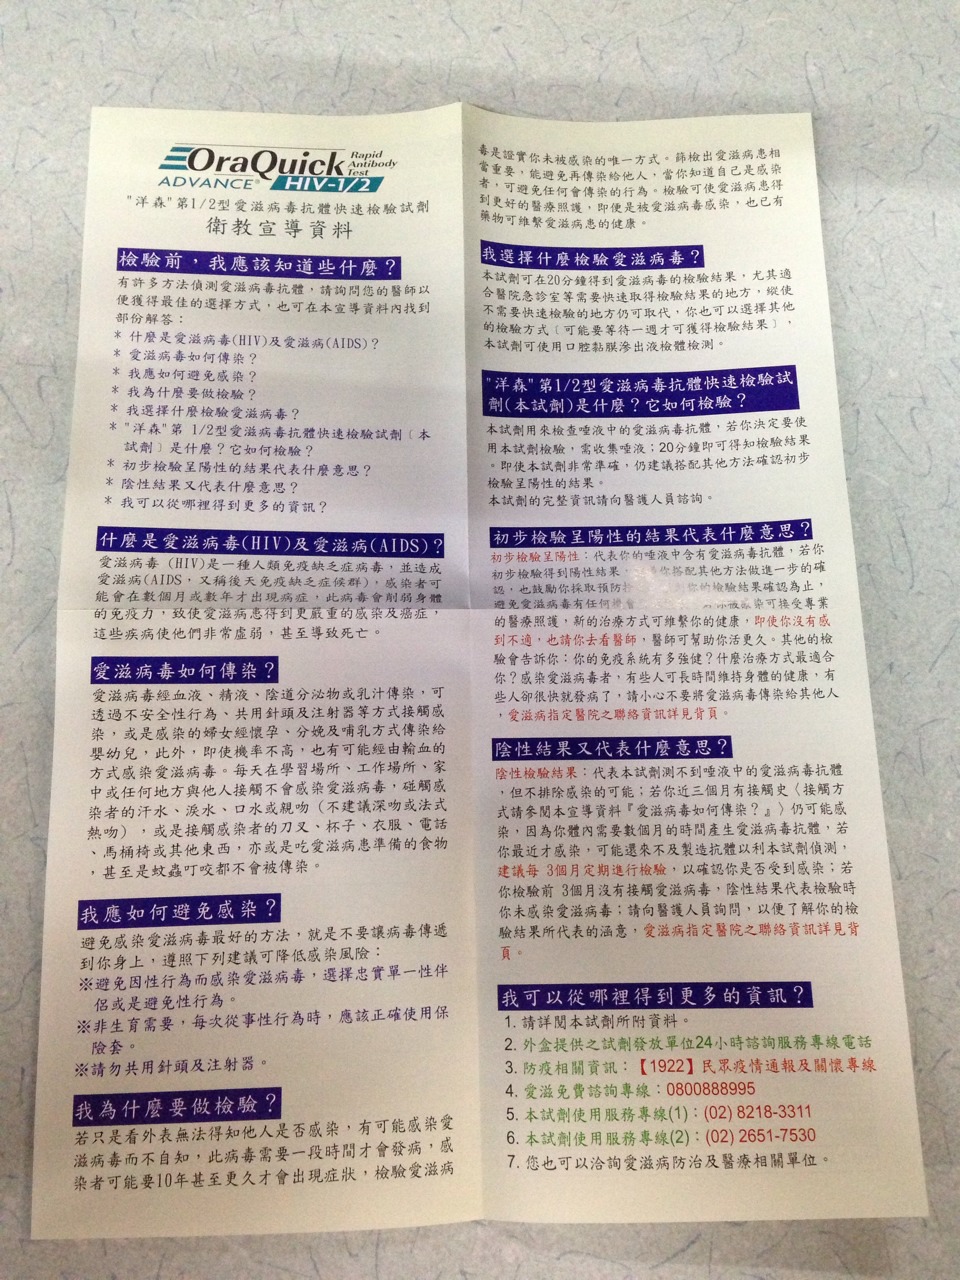 OraQuick Rapid Antibody Test
ADVANCE® HIV-1/2
"洋森"第1/2型愛滋病毒抗體快速檢驗試劑
衛教宣導資料
檢驗前，我應該知道些什麼？
有許多方法偵測愛滋病毒抗體，請詢問您的醫師以
便獲得最佳的選擇方式，也可在本宣導資料內找到
部份解答：
* 什麼是愛滋病毒(HIV)及愛滋病(AIDS)？
* 愛滋病毒如何傳染？
* 我應如何避免感染？
* 我為什麼要做檢驗？
* 我選擇什麼檢驗愛滋病毒？
* "洋森"第 1/2型愛滋病毒抗體快速檢驗試劑﹝本
試劑﹞是什麼？它如何檢驗？
* 初步檢驗呈陽性的結果代表什麼意思？
* 陰性結果又代表什麼意思？
* 我可以從哪裡得到更多的資訊？
什麼是愛滋病毒(HIV)及愛滋病(AIDS)？
愛滋病毒 (HIV)是一種人類免疫缺乏症病毒，並造成
愛滋病(AIDS，又稱後天免疫缺乏症候群)，感染者可
能會在數個月或數年才出現病症，此病毒會削弱身體
的免疫力，致使愛滋病患得到更嚴重的感染及癌症，
這些疾病使他們非常虛弱，甚至導致死亡。
愛滋病毒如何傳染？
愛滋病毒經血液、精液、陰道分泌物或乳汁傳染，可
透過不安全性行為、共用針頭及注射器等方式接觸感
染，或是感染的婦女經懷孕、分娩及哺乳方式傳染給
嬰幼兒，此外，即使機率不高，也有可能經由輸血的
方式感染愛滋病毒。每天在學習場所、工作場所、家
中或任何地方與他人接觸不會感染愛滋病毒，碰觸感
染者的汗水、淚水、口水或親吻（不建議深吻或法式
熱吻），或是接觸感染者的刀叉、杯子、衣服、電話
、馬桶椅或其他東西，亦或是吃愛滋病患準備的食物
，甚至是蚊蟲叮咬都不會被傳染。
我應如何避免感染？
避免感染愛滋病毒最好的方法，就是不要讓病毒傳遞
到你身上，遵照下列建議可降低感染風險：
※避免因性行為而感染愛滋病毒，選擇忠實單一性伴
侶或是避免性行為。
※非生育需要，每次從事性行為時，應該正確使用保
險套。
※請勿共用針頭及注射器。
我為什麼要做檢驗？
若只是看外表無法得知他人是否感染，有可能感染愛
滋病毒而不自知，此病毒需要一段時間才會發病，感
染者可能要10年甚至更久才會出現症狀，檢驗愛滋病
毒是證實你未被感染的唯一方式。篩檢出愛滋病患相
當重要，能避免再傳染給他人，當你知道自己是感染
者，可避免任何會傳染的行為。檢驗可使愛滋病患得
到更好的醫療照護，即便是被愛滋病毒感染，也已有
藥物可維繫愛滋病患的健康。
我選擇什麼檢驗愛滋病毒？
本試劑可在20分鐘得到愛滋病毒的檢驗結果，尤其適
合醫院急診室等需要快速取得檢驗結果的地方，縱使
不需要快速檢驗的地方仍可取代，你也可以選擇其他
的檢驗方式﹝可能要等待一週才可獲得檢驗結果﹞，
本試劑可使用口腔黏膜滲出液檢體檢測。
"洋森"第1/2型愛滋病毒抗體快速檢驗試
劑(本試劑)是什麼？它如何檢驗？
本試劑用來檢查唾液中的愛滋病毒抗體，若你決定要使
用本試劑檢驗，需收集唾液；20分鐘即可得知檢驗結果
。即使本試劑非常準確，仍建議搭配其他方法確認初步
檢驗呈陽性的結果。
本試劑的完整資訊請向醫護人員諮詢。
初步檢驗呈陽性的結果代表什麼意思？
初步檢驗呈陽性：代表你的唾液中含有愛滋病毒抗體，若你
初步檢驗得到陽性結果，你搭配其他方法做進一步的確
認，也鼓勵你採取預防 你的檢驗結果確認為止，
避免愛滋病毒有任何機會 你被感染可接受專業
的醫療照護，新的治療方式可維繫你的健康，即使你沒有感
到不適，也請你去看醫師，醫師可幫助你活更久。其他的檢
驗會告訴你：你的免疫系統有多強健？什麼治療方式最適合
你？感染愛滋病毒者，有些人可長時間維持身體的健康，有
些人卻很快就發病了，請小心不要將愛滋病毒傳染給其他人
，愛滋病指定醫院之聯絡資訊詳見背頁。
陰性結果又代表什麼意思？
陰性檢驗結果：代表本試劑測不到唾液中的愛滋病毒抗體
，但不排除感染的可能；若你近三個月有接觸史〈接觸方
式請參閱本宣導資料『愛滋病毒如何傳染？』〉仍可能感
染，因為你體內需要數個月的時間產生愛滋病毒抗體，若
你最近才感染，可能還來不及製造抗體以利本試劑偵測，
建議每 3個月定期進行檢驗，以確認你是否受到感染；若
你檢驗前 3個月沒有接觸愛滋病毒，陰性結果代表檢驗時
你未感染愛滋病毒；請向醫護人員詢問，以便了解你的檢
驗結果所代表的涵意，愛滋病指定醫院之聯絡資訊詳見背
頁。
我可以從哪裡得到更多的資訊？
1. 請詳閱本試劑所附資料。
2. 外盒提供之試劑發放單位24小時諮詢服務專線電話
3. 防疫相關資訊：【1922】民眾疫情通報及關懷專線
4. 愛滋免費諮詢專線：0800888995
5. 本試劑使用服務專線(1)：(02) 8218-3311
6. 本試劑使用服務專線(2)：(02) 2651-7530
7. 您也可以洽詢愛滋病防治及醫療相關單位。